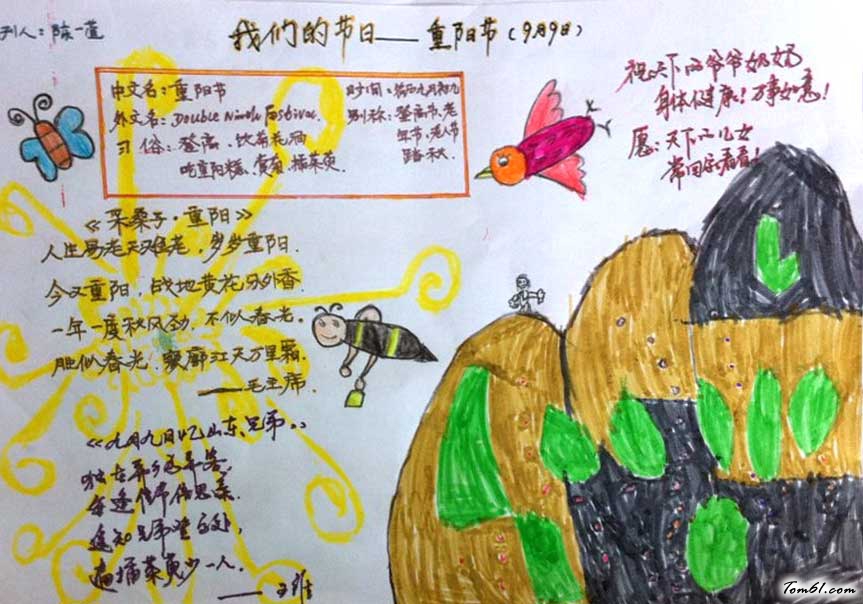 我们的节日——重阳节(9月9日)
中文名：重阳节
外文名：Double Ninth Festival
习俗：登高、饮菊花酒
吃重阳糕、赏菊、插茱萸
时间：农历九月初九
别称：登高节、老
年节、老人节
踏秋
祝：天下的爷爷奶奶
身体健康！万事如意！
愿：天下的儿女
常回家看看！
《采桑子·重阳》
人生易老天难老，岁岁重阳.
今又重阳，战地黄花分外香.
一年一度秋风劲，不似春光.
胜似春光，寥廓江天万里霜.
——毛主席.
《九月九日忆山东兄弟》
独在异乡为异客，
每逢佳节倍思亲.
遥知兄弟登高处，
遍插茱萸少一人.
——王维
Tom61.com